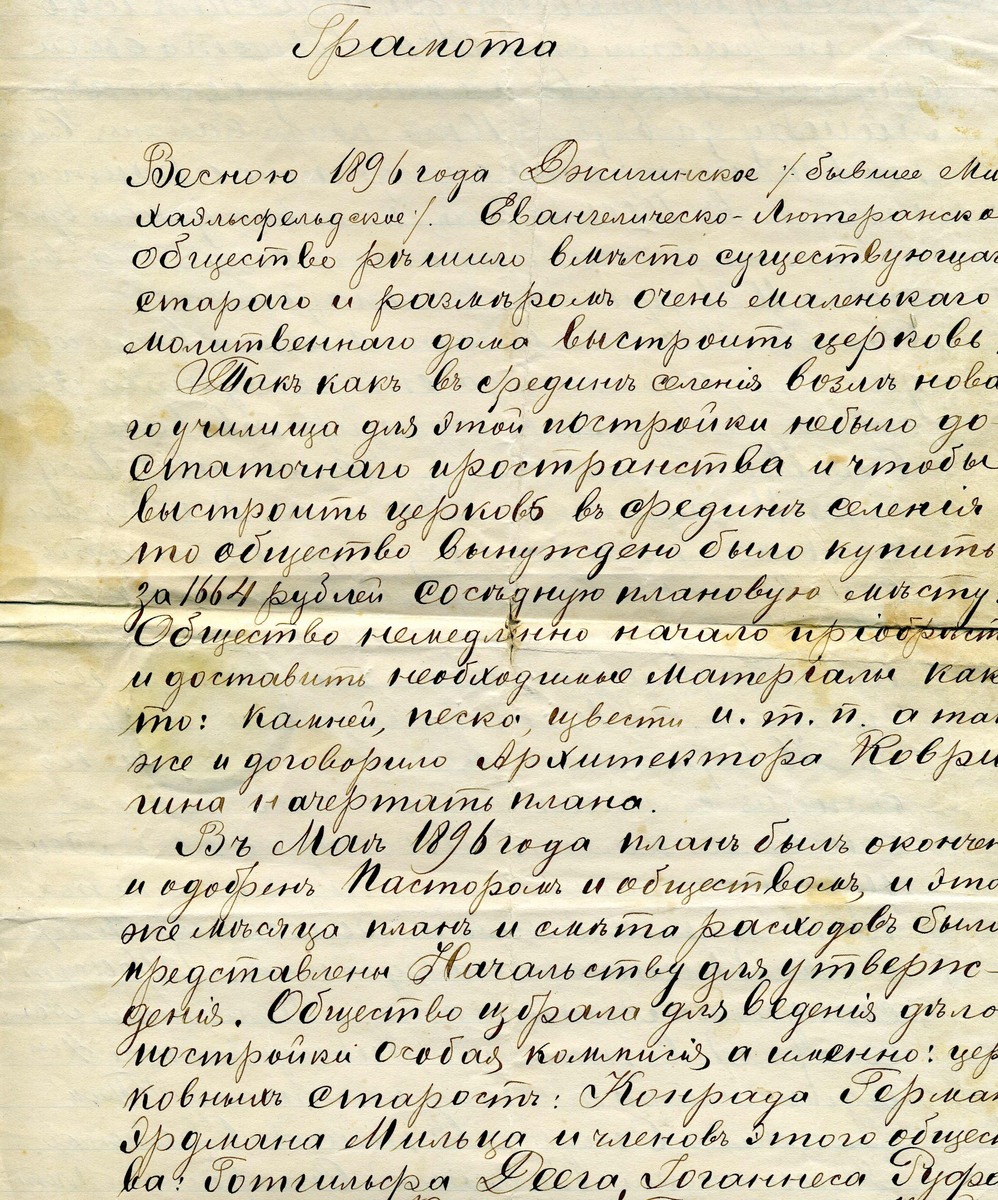 Грамота
Весною 1896 года Джигинское /. бывшее Ми
хаэльсфельдское /. Евангелическо-Лютеранско
общество рѣшило вмѣсто существующаг
стараго и размѣромъ очень маленькаго
молитвеннаго дома выстроить церковь.
Такъ какъ въ срединѣ селенія возлѣ нова
го училища для этой постройки небыло до
статочнаго пространства и чтобы
выстроить церковь въ срединѣ селенія
то общество вынуждено было купить
за 1664 рублей сосѣдную плановую мѣсту.
Общество немедленно начало пріобрѣст
и доставить необходимые матеріалы как
то: камней, песко, извести и. т. п. а так
же и договорило Архитектора Коври
гина начертать плана.
Въ Маѣ 1896 года планъ былъ окончен
и одобренъ Пасторомъ и обществомъ, и это
же мѣсяца планъ и смѣта расходовъ были
представлены Начальству для утверж-
денія. Общество избрала для веденія дѣло
постройки особая коммисія а именно: цер
ковныхъ старостъ: Конрада Герман
Эрдмана Мильца и членовъ этого общес
ва: Готгильфа Деега, Іоганнеса Руфа